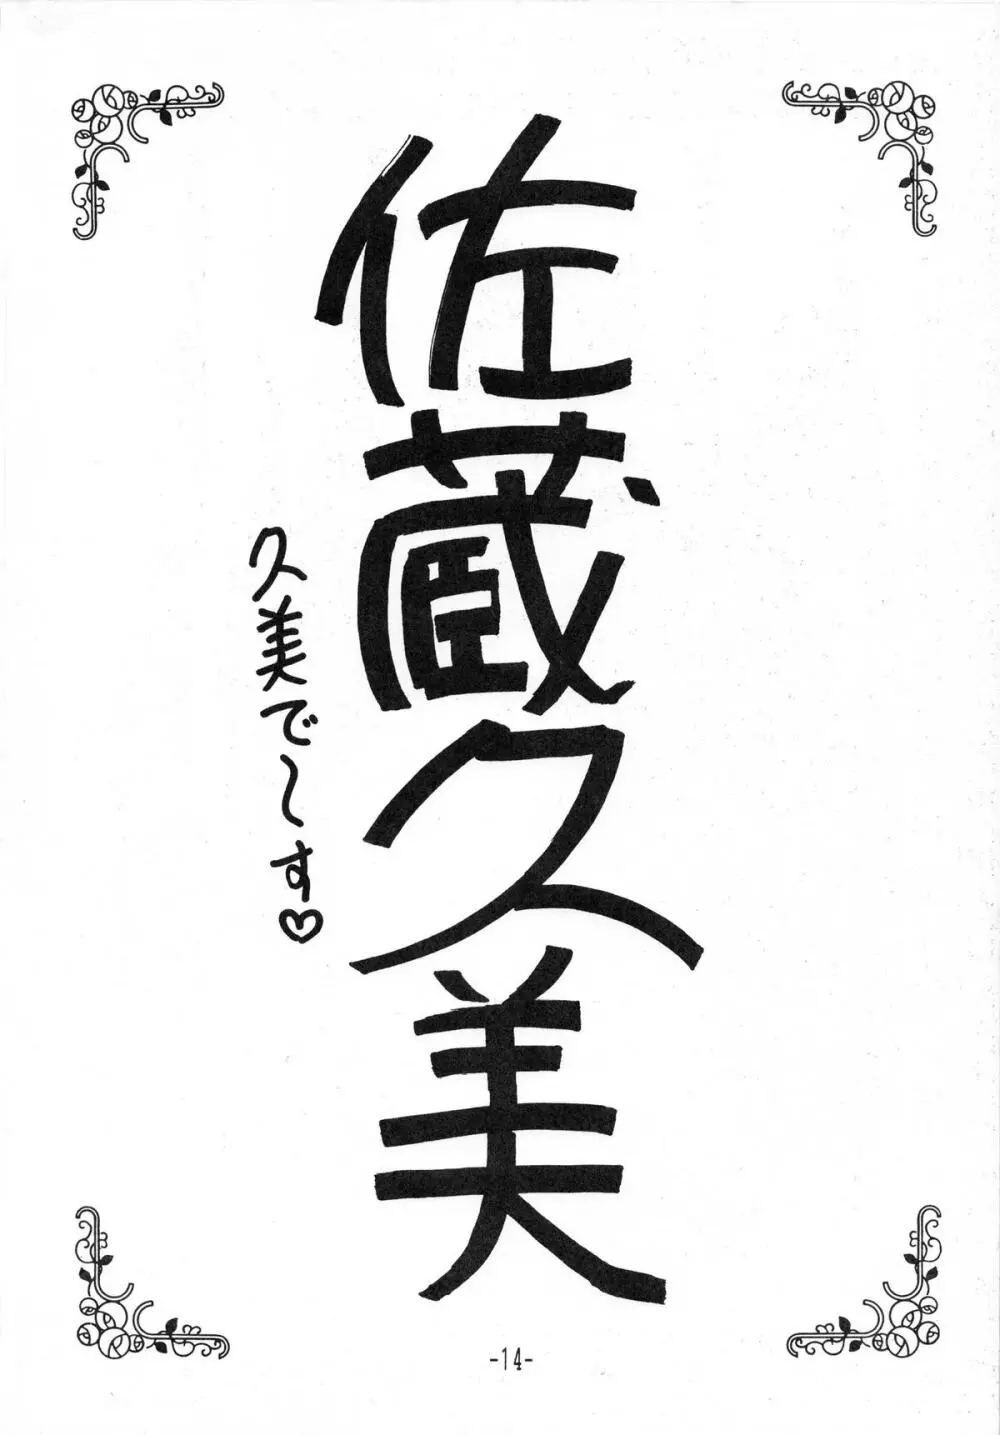 佐蔵久美
久美で〜す♡
-14-